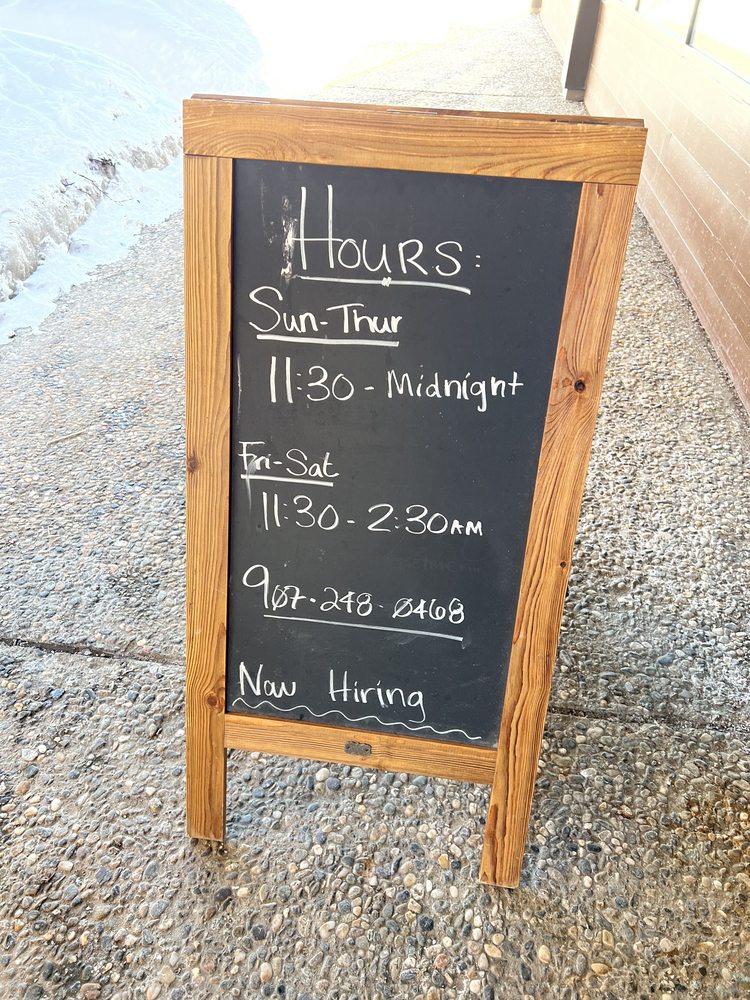 HOURS:
Sun-Thur
11:30 - Midnight
Fri-Sat
11:30 - 2:30AM
907-248-0468
Now Hiring